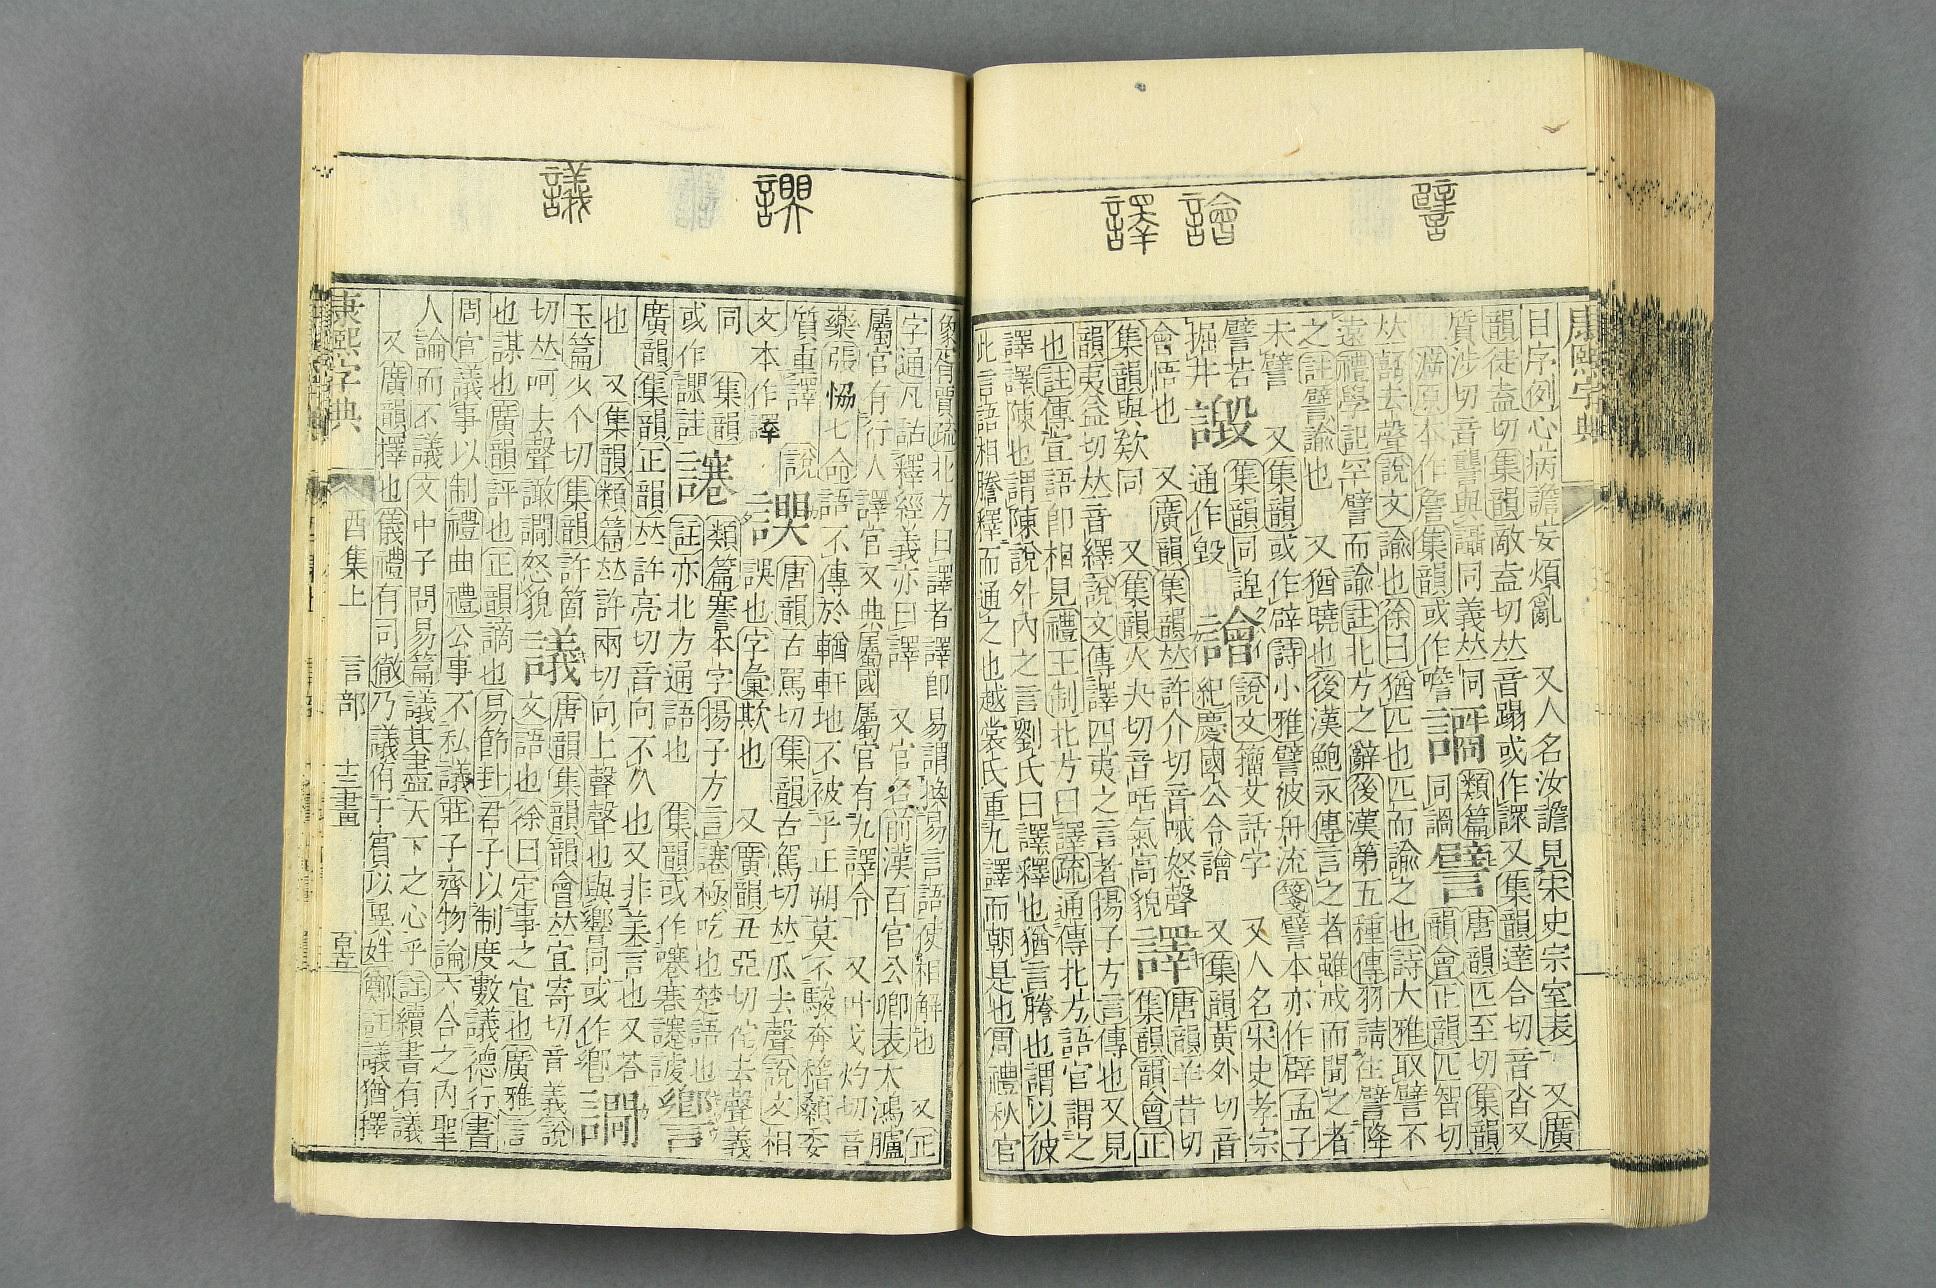 譬
譮
譯
康熙字典
目序例心病譫妄煩亂　又人名汝譫見宋史宗室表　又廣
韻徒盍切集韻敵盍切𠀤音蹋或作譶又集韻達合切音沓又
質涉切音讋與讘同義𠀤同
類篇同譌
譬
唐韻匹至切集韻
韻會正韻匹智切
𠀤音去聲說文諭也徐曰猶匹也匹而諭之也詩大雅取譬不
遠禮學記罕譬而諭註北方之辭後漢第五種傳羽請往譬降
之註譬諭也　又猶曉也後漢鮑永傳言之者雖戒而聞之者
未譬　又集韻或作辟詩小雅譬彼舟流箋譬本亦作辟孟子
譬若
掘井
譭
集韻同諻
通作毀
譮
說文籀文話字　又人名宋史孝宗
紀慶國公令譮　又集韻黃外切音
會悟也　又廣韻集韻𠀤許介切音哦怒聲
集韻與欸同　又集韻火夬切音咶氣高貌
譯
唐韻羊昔切
集韻韻會正
韻夷益切𠀤音繹說文傳譯四夷之言者揚子方言傳也又見
也註傳宣語卽相見禮王制北方曰譯疏通傳北方語官謂之
譯譯陳也謂陳說外內之言劉氏曰譯釋也猶言謄也謂以彼
此言語相謄釋而通之也越裳氏重九譯而朝是也周禮秋官
議
象胥賈疏北方曰譯者譯卽易謂換易言語使相解也　又正
字通凡詁釋經義亦曰譯　又官名前漢百官公卿表大鴻臚
屬官有行人譯官又典屬國屬官有九譯令　又叶弋灼切音
藥張協七命語不傳於輶軒地不被乎正朔莫不駿奔稽顙委
質重譯
說
文本作譯
誤也字彙欺也　又廣韻丑亞切侘去聲義
唐韻古罵切集韻古駕切𠀤瓜去聲說文相
同
集韻
或作謑註
謇
類篇謇本字揚子方言讓極吃也楚語也
註亦北方通語也　集韻或作
響
廣韻集韻正韻𠀤許亮切音向不久也又非美言也又荅
也　又集韻類篇𠀤許兩切同上聲聲也與響同或作
玉篇火个切集韻許箇
切𠀤呵去聲譀譋怒貌
議
唐韻集韻韻會𠀤宜寄切音義說
文語也徐曰定事之宜也廣雅言
也謀也廣韻評也正韻謫也易節卦君子以制度數議德行書
周官議事以制禮曲禮公事不私議莊子齊物論六合之內聖
人論而不議文中子問易篇議其盡天下之心乎註續書有議
又廣韻擇也儀禮有司徹乃議侑于賓以異姓鄭註議猶擇
康熙字典
酉集上
言部
十三畫